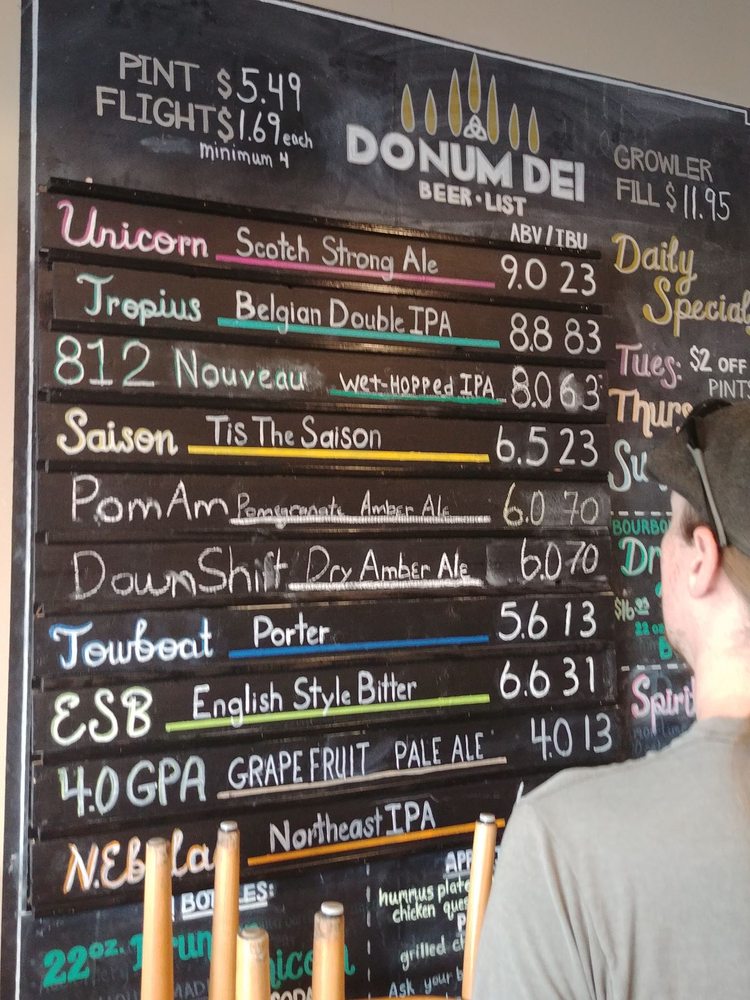 PINT $5.49
FLIGHT $1.69 each
minimum 4
DONUM DEI
BEER · LIST
GROWLER
FILL $11.95
ABV/IBU
Unicorn Scotch Strong Ale 9.0 23
Tropius Belgian Double IPA 8.8 83
812 Nouveau Wet-Hopped IPA 8.0 63
Saison Tis The Saison 6.5 23
PomAm Pomegranate Amber Ale 6.0 70
DownShift Dry Amber Ale 6.0 70
Towboat Porter 5.6 13
ESB English Style Bitter 6.6 31
4.0 GPA GRAPEFRUIT PALE ALE 4.0 13
N.Ebula Northeast IPA
Daily
Special
Tues: $2 OFF
PINT
Thurs
Su
BOURBO
Dr
$16
22 oz
Spiri
BOTTLES:
22oz.
hummus plate
chicken ques
grilled
Ask your b